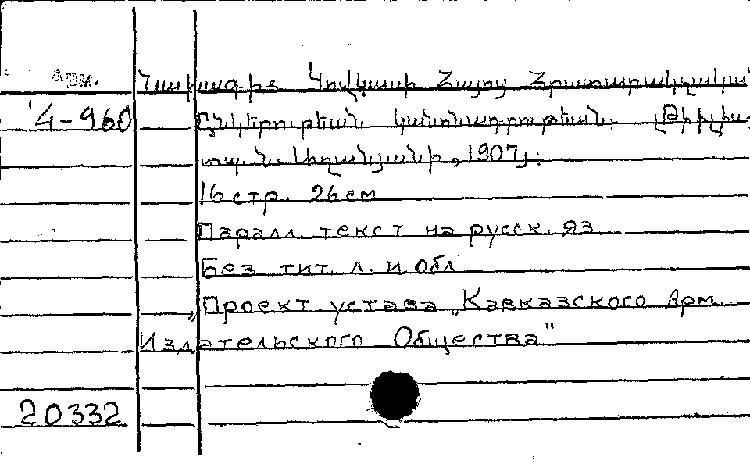 Арм. Նախագիծ Կովկասի Հայոց Հրատարակչական
4-960 Ընկերութեան կանոնադրութեան. Թիֆլիս
տպ. Ն. Աղանեանի, 1907թ.
16 стр. 26 см
Паралл. текст на русск. яз.
Без тит. л. и обл
„Проект устава „Кавказского Арм.
Издательского Общества"
20332